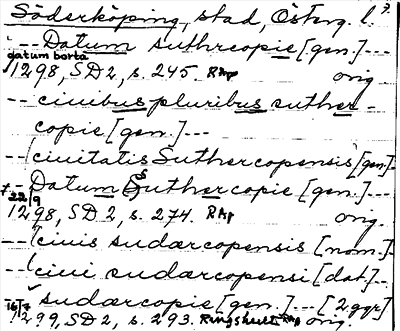 Söderköping, stad, Österg. l.
--Datum suthrcopie [gen.]---
datum borta
1298, SD2, s. 245. RAp orig
--ciuibus pluribus suther-
copie [gen.]---
--(ciuitatis Suthercopensis [gen.]-
--Datum Suthercopie [gen.]---
22/9
1298, SD2, s. 274. RAp orig.
--(ciuis sudærcopensis [nom.]
--(ciui sudærcopensi [dat.]--
sudærcopie [gen.]--- [2 ggr]
16/7
1299, SD2, s. 293. Ringshult RAp orig